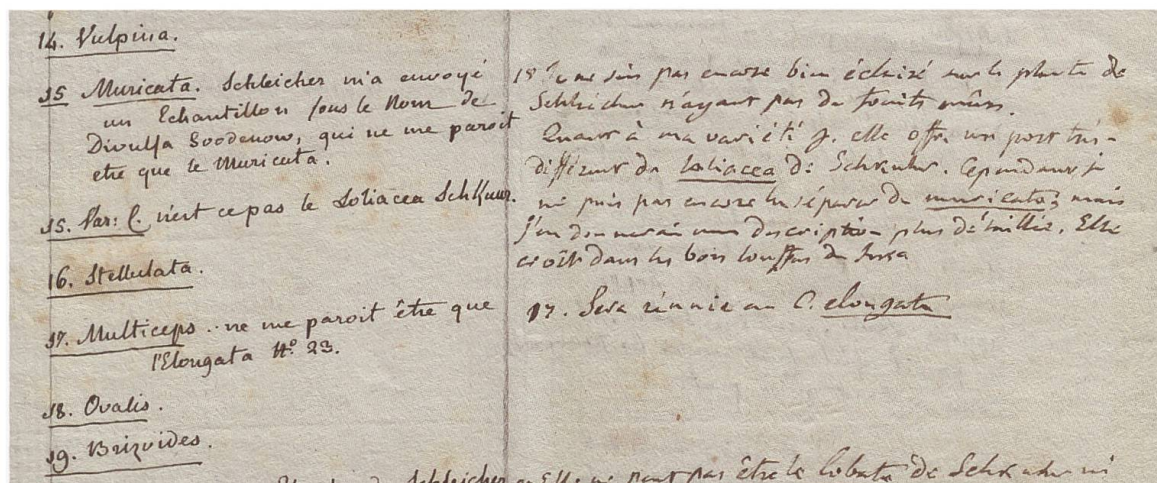 14. Vulpina.
15 Muricata. Schleicher m'a envoyé
un Echantillon sous le Nom de
Divulsa Goodenow, qui ne me paroit
etre que le Muricata.
15. Var: C n'est ce pas le Loliacea Schkuur.
16. Stellulata.
17. Multiceps .. ne me paroit être que
l'Elongata N.o 23.
18. Ovalis.
19. Brizoides.
Schleicher
15 Je ne suis pas encore bien éclairé sur la plante de
Schleicher n'ayant pas de fruits mûrs.
Quant à ma variété γ. elle offre un port très-
différent du Loliacea de Schkuhr. Cependant je
ne puis pas encore la séparer du muricata; mais
j'en donnerai une description plus détaillée. Elle
croît dans les bois touffus du Jura
17. Sera réunie au C. elongata
Elle ne peut pas être le lobata de Schkuhr ni